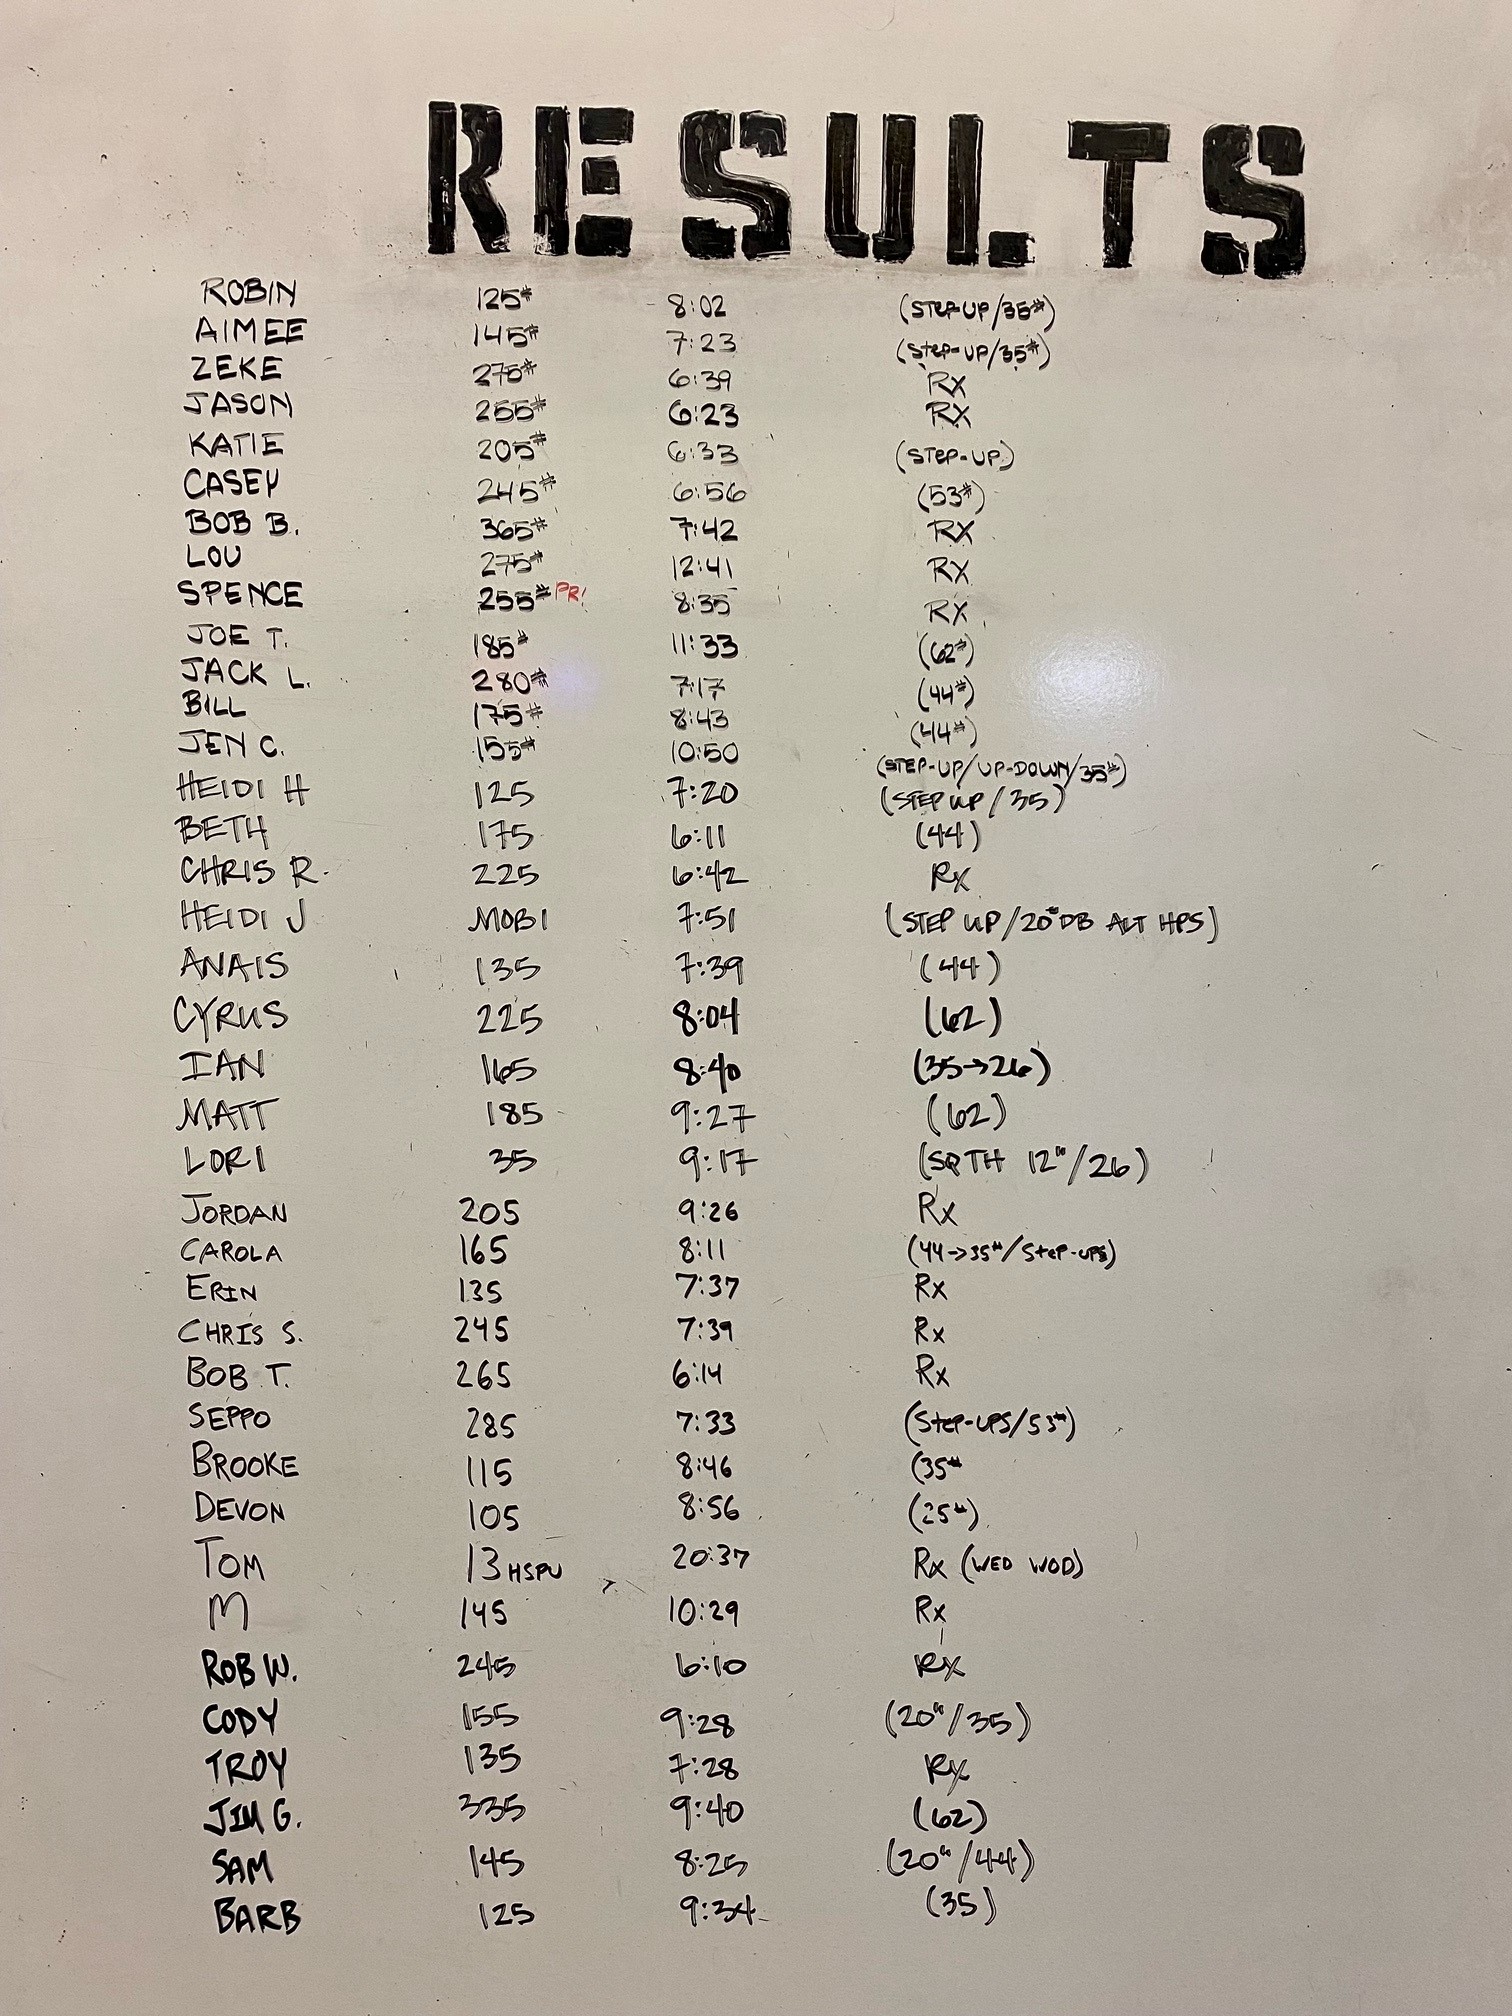 RESULTS
ROBIN 125# 8:02 (STEP-UP/35#)
AIMEE 145# 7:23 (STEP-UP/35#)
ZEKE 275# 6:39 RX
JASON 255# 6:23 RX
KATIE 205# 6:33 (STEP-UP)
CASEY 245# 6:56 (53#)
BOB B. 365# 7:42 RX
LOU 275# 12:41 RX
SPENCE 255# PR! 8:35 RX
JOE T. 185# 11:33 (62#)
JACK L. 280# 7:17 (44#)
BILL 175# 8:43 (44#)
JEN C. 155# 10:50 (STEP-UP/UP-DOWN/35#)
HEIDI H 125 7:20 (STEP UP/35)
BETH 175 6:11 (44)
CHRIS R. 225 6:42 Rx
HEIDI J MOBI 7:51 (STEP UP/20# DB ALT HPS)
ANAIS 135 7:39 (44)
CYRUS 225 8:04 (62)
IAN 165 8:40 (35→26)
MATT 185 9:27 (62)
LORI 35 9:17 (SQ TH 12"/26)
JORDAN 205 9:26 Rx
CAROLA 165 8:11 (44→35#/STEP-UPS)
ERIN 135 7:37 Rx
CHRIS S. 245 7:39 Rx
BOB T. 265 6:14 Rx
SEPPO 285 7:33 (STEP-UPS/53#)
BROOKE 115 8:46 (35#
DEVON 105 8:56 (25#)
TOM 13 HSPU 20:37 Rx (WED WOD)
M 145 10:29 Rx
ROB W. 245 6:10 RX
CODY 155 9:28 (20"/35)
TROY 135 7:28 RX
JIM G. 335 9:40 (62)
SAM 145 8:25 (20"/44)
BARB 125 9:34 (35)